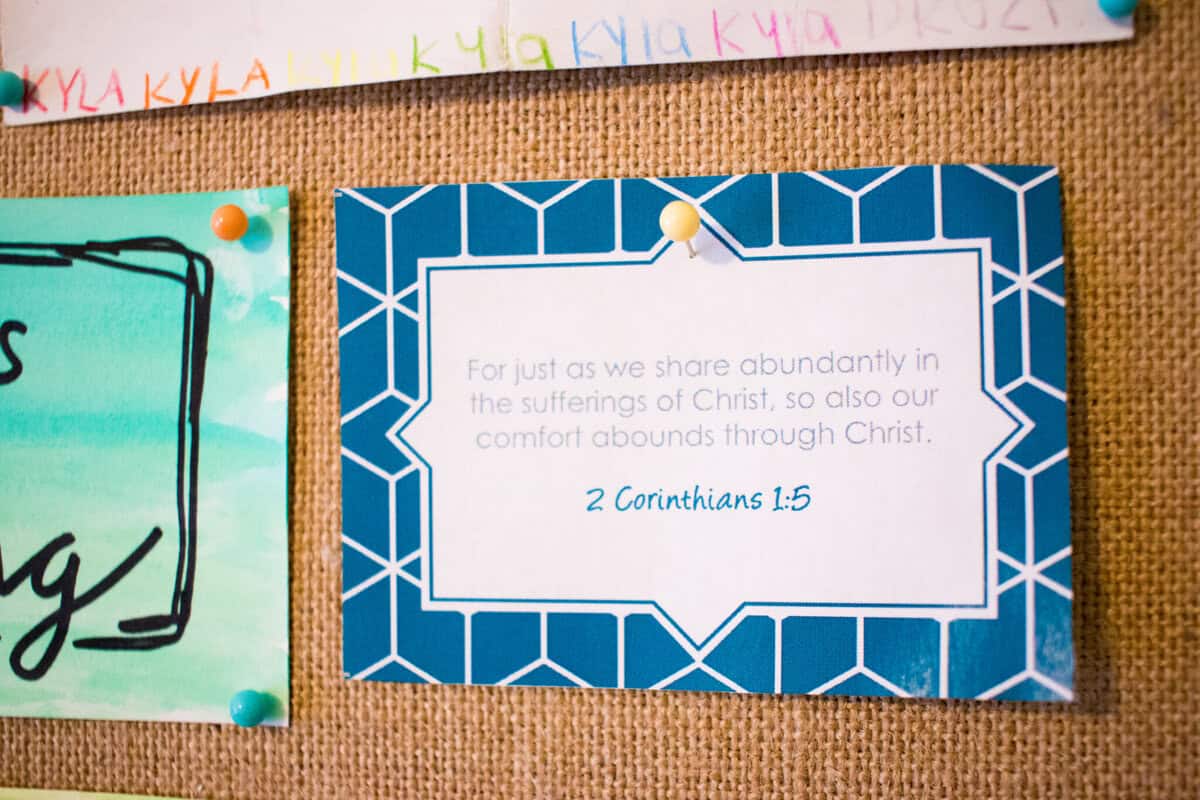 KYLA KYLA KYLA Kyla Kyla Kyla
s
ng
For just as we share abundantly in
the sufferings of Christ, so also our
comfort abounds through Christ.
2 Corinthians 1:5